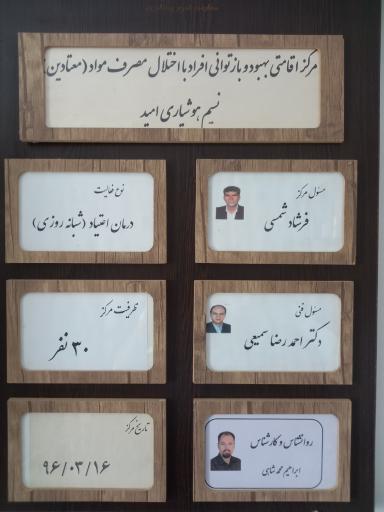 مرکز اقامتی بهبود و بازتوانی افراد با اختلال مصرف مواد (معتادین)
نسیم هوشیاری امید
مسئول مرکز
فرشاد شمسی
نوع فعالیت
درمان اعتیاد (شبانه روزی)
مسئول فنی
دکتر احمد رضا سمیعی
ظرفیت مرکز
۳۰ نفر
روانشناس و کارشناس
ابراهیم محمد شاهی
تاریخ مرکز
۹۶/۰۳/۱۶